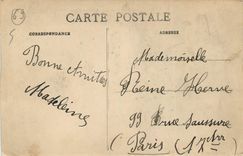 CARTE POSTALE
CORRESPONDANCE
ADRESSE
Bonne Amitié
Madeleine
Mademoiselle
Reine Herve
99 rue Saussure
Paris (17e Arr